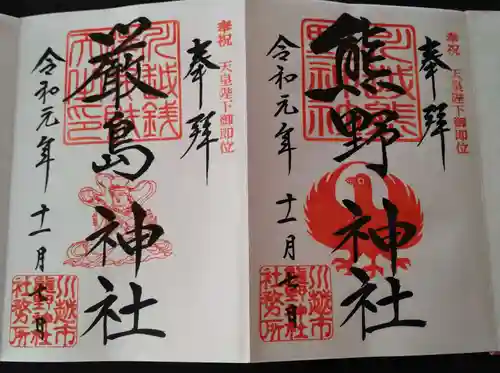 奉祝 天皇陛下御即位
奉拝
熊野神社
令和元年 十一月 七日
川越市
熊野神社
社務所
奉祝 天皇陛下御即位
奉拝
厳島神社
令和元年 十一月 七日
川越市
熊野神社
社務所